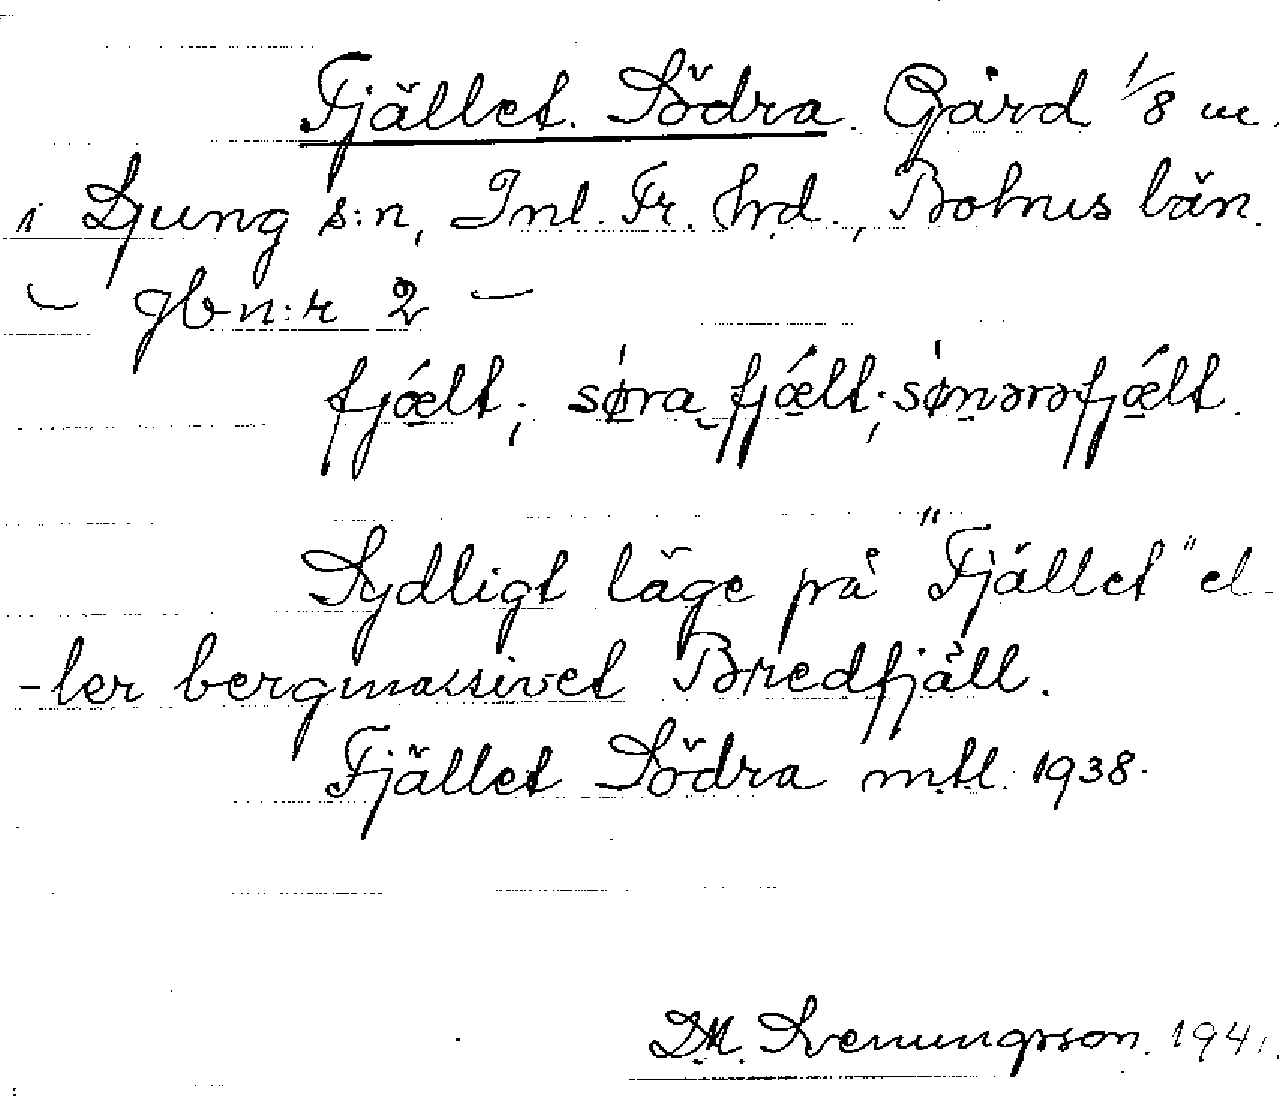 Fjället. Södra. Gård 1/8 m.
i Ljung s:n, Inl. Fr. hrd., Bohus län.
– gbn:r 2 –
fjǽlt; sø̍ra fjǽlt; sø̍nərəfjǽlt.
Sydligt läge på "Fjället" el-
-ler bergmassivet Bredfjäll.
Fjället Södra mtl. 1938.
D.M. Svenungsson. 1941.